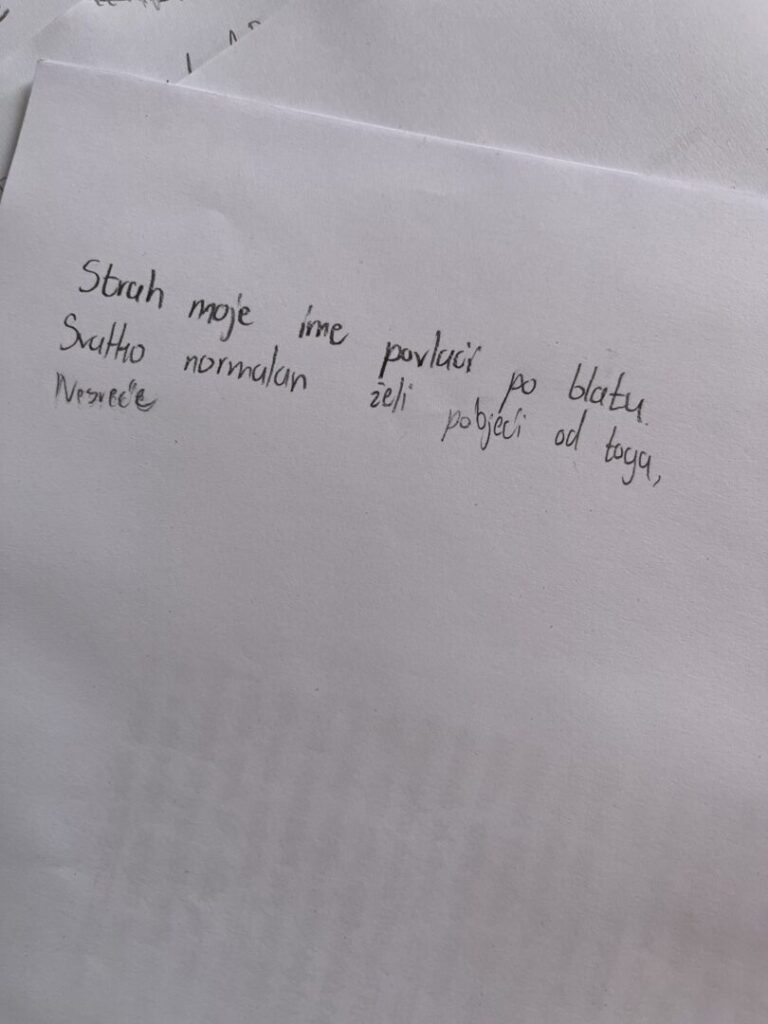 Strah moje ime povlači po blatu.
Svatko normalan želi pobjeći od toga,
Nesreće